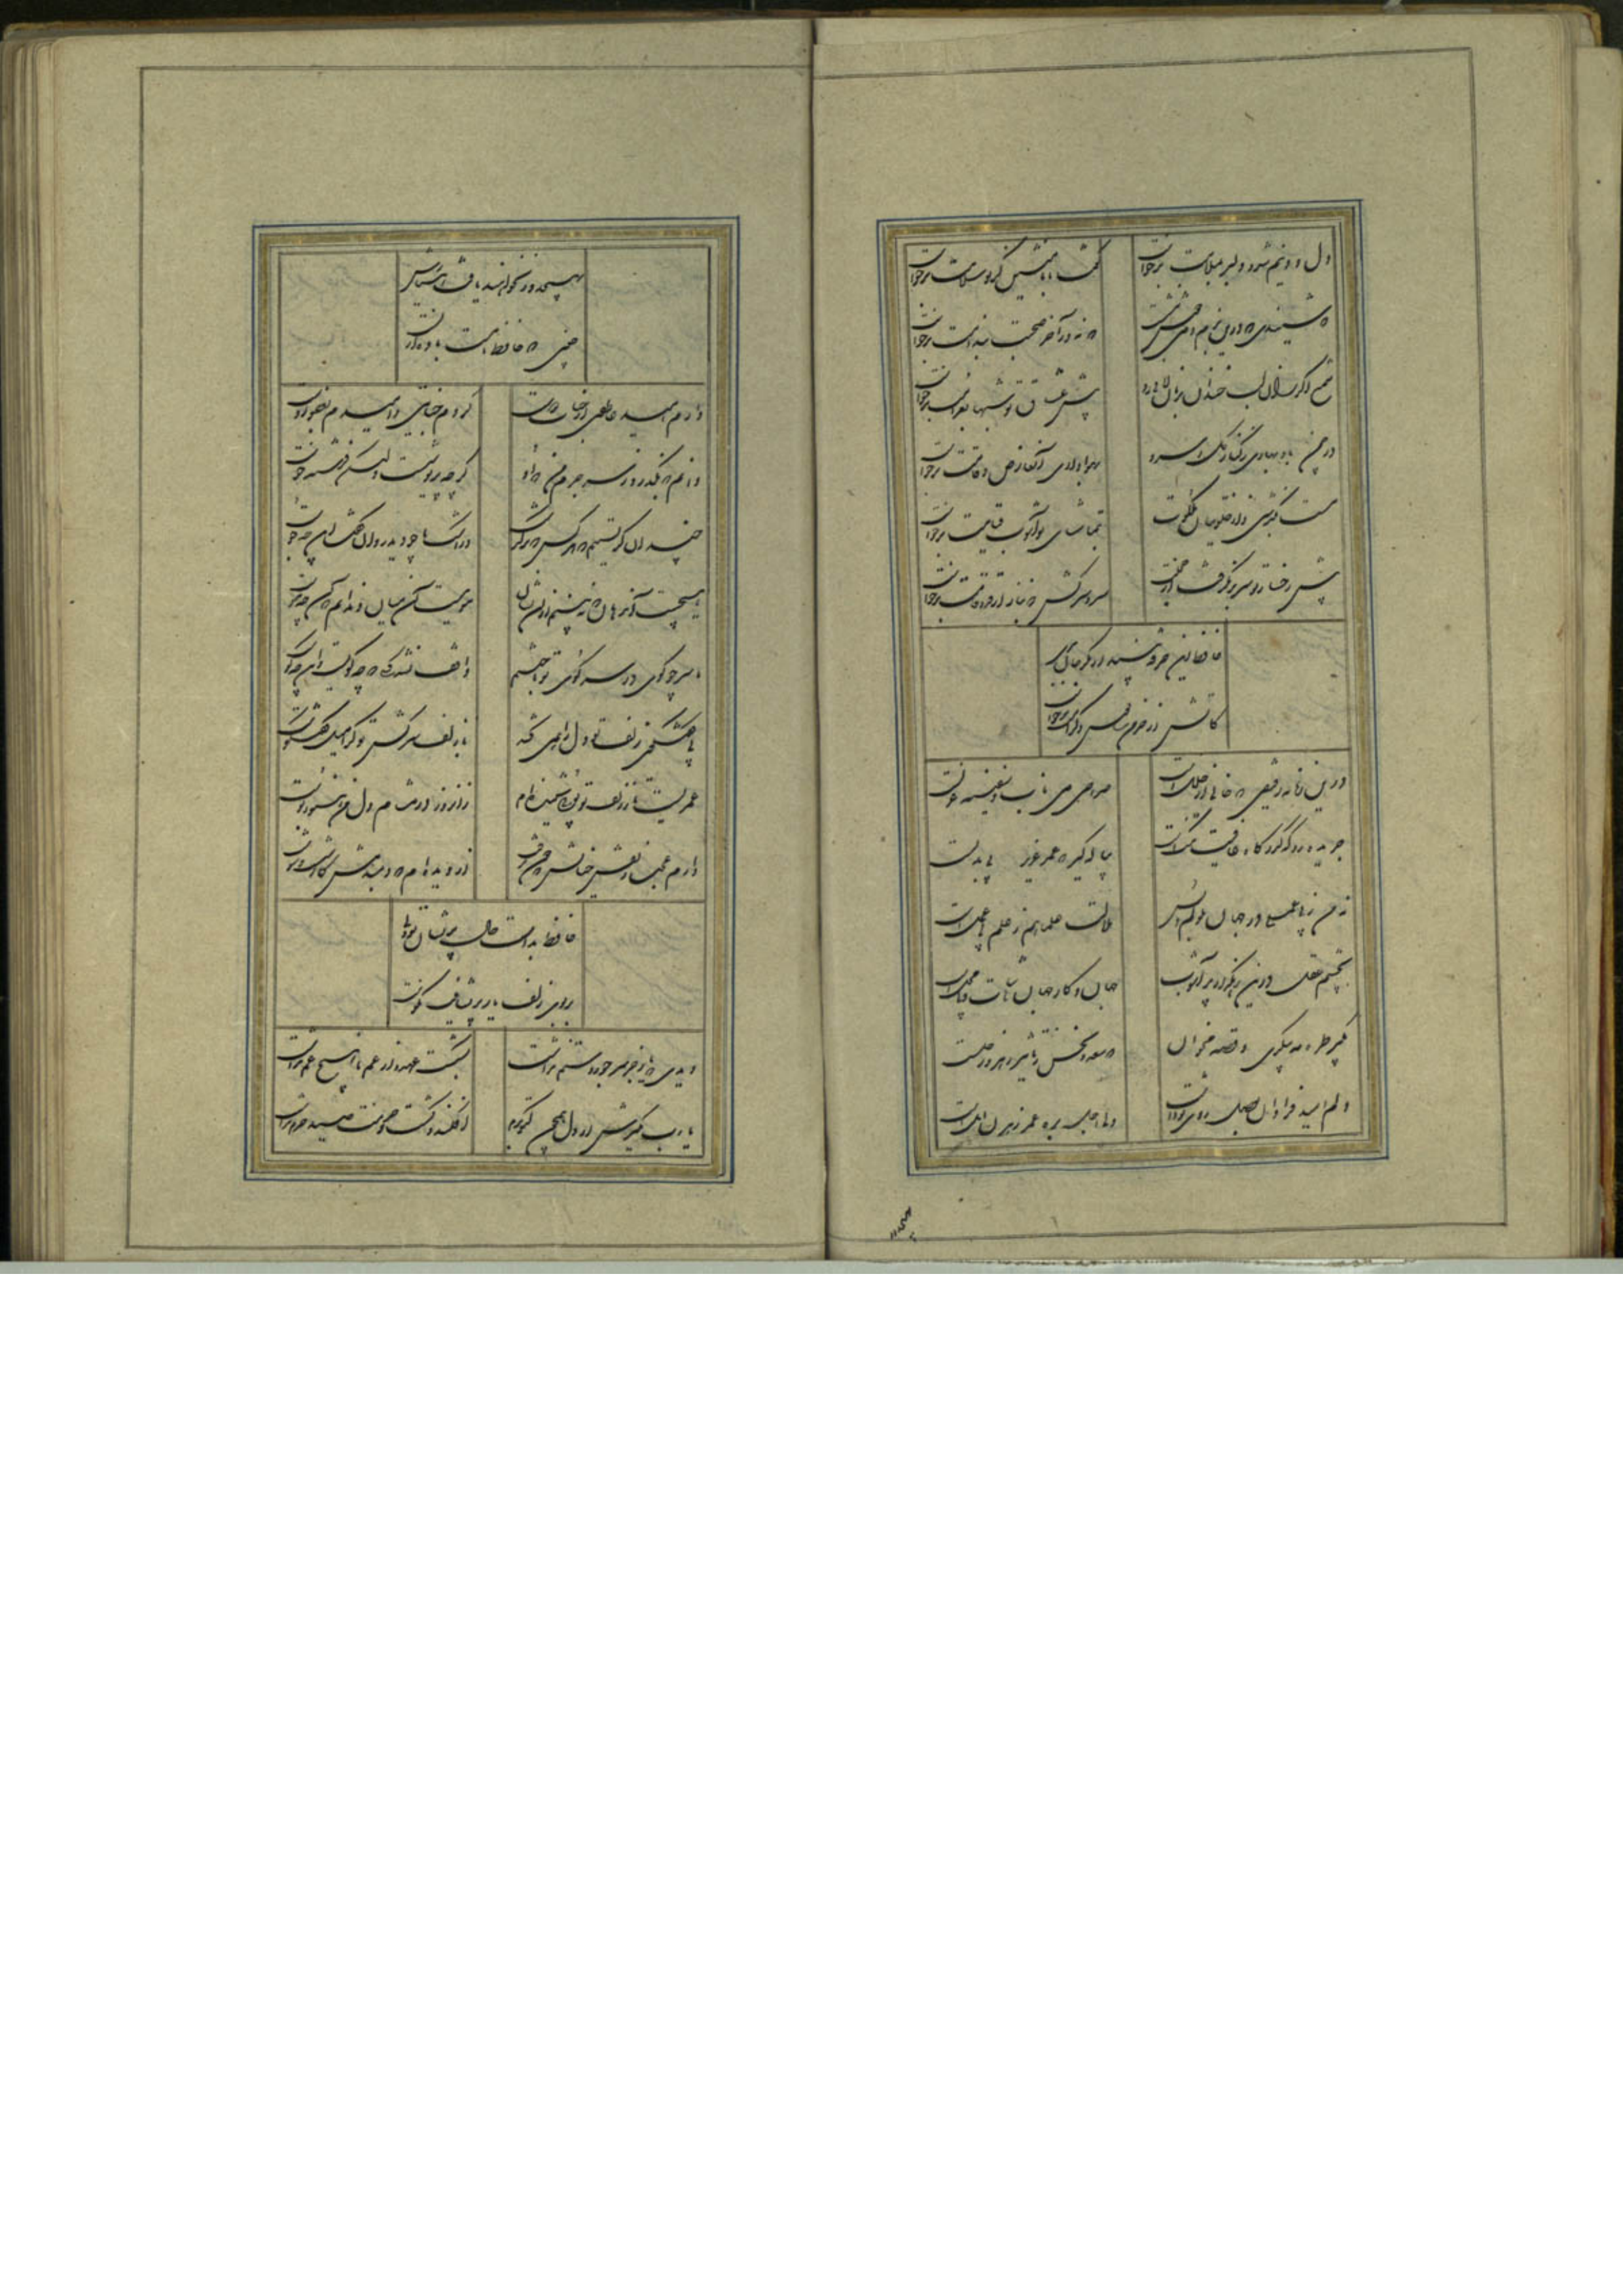 دل و دینم شد و دلبر بملامت برخاست
گفت با ما منشین کز تو سلامت برخاست
که شنیدی که درین بزم دمی خوش بنشست
که نه در آخر صحبت بندامت برخاست
شمع اگر زان لب خندان بزبان لافی زد
پیش عشاق تو شبها بغرامت برخاست
در چمن باد بهاری ز کنار گل و سرو
بهواداری آن عارض و قامت برخاست
مست بگذشتی و از خلوتیان ملکوت
بتماشای تو آشوب قیامت برخاست
پیش رفتار تو پا برنگرفت از خجلت
سرو سرکش که بناز از قد و قامت برخاست
حافظ این خرقه بینداز مگر جان ببری
کاتش از خرمن سالوس و کرامت برخاست
درین زمانه رفیقی که خالی از خللست
صراحی می ناب و سفینه غزلست
جریده رو که گذرگاه عافیت تنگست
پیاله گیر که عمر عزیز بی بدلست
نه من ز بی عملی در جهان ملولم و بس
ملالت علما هم ز علم بی عملست
بچشم عقل درین رهگذار پرآشوب
جهان و کار جهان بی ثبات و بی محلست
بگیر طره مه پیکری و قصه مخوان
که سعد و نحس ز تاثیر زهره و زحلست
دلم امید فراوان بوصل روی تو داشت
ولی اجل بره عمر رهزن املست
بهیچ دور نخواهند یافت هشیارش
چنین که حافظ ما مست باده ازلست
دارم امید عاطفتی از جناب دوست
کردم جنایتی و امیدم بعفو اوست
دانم که بگذرد ز سر جرم من که او
گرچه پریوشست ولیکن فرشته خوست
چندان گریستیم که هر کس که برگذشت
در اشک ما چو دید روان گفت این چه جوست
هیچست آن دهان که نبینم ازو نشان
مویست آن میان و ندانم که آن چه موست
ما سر چو گوی در سر کوی تو باختیم
واقف نشد کسی که چه گویست و این چه کوست
بی گفتگوی زلف تو دل را همی کشد
با زلف سرکش تو کرا روی گفتگوست
عمریست تا ز زلف تو بویی شنیده ام
زان روز در مشام دل من هنوز بوست
دارم عجب ز نقش خیالش که چون نرفت
از دیده ام که دمبدمش کار شست و شوست
حافظ بدست حال پریشان تو ولی
بر بوی زلف یار پریشانیت نکوست
دیدی که یار جز سر جور و ستم نداشت
بشکست عهد و از غم ما هیچ غم نداشت
یا رب مگیرش ار چه دل چون کبوترم
افکند و کشت و عزت صید حرم نداشت
بهیچ دور